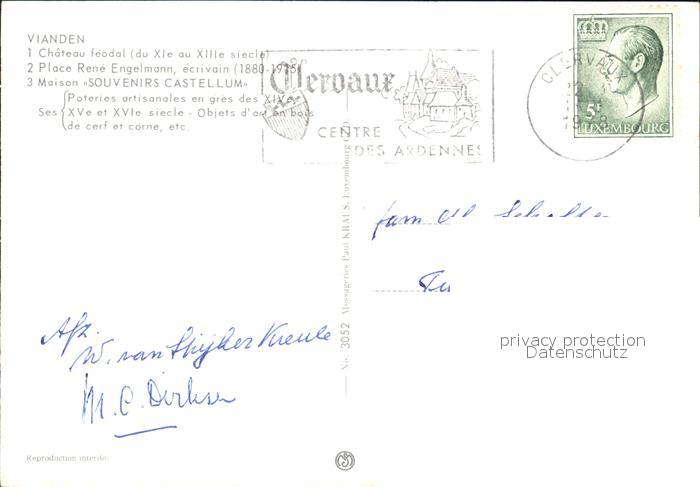 VIANDEN
1 Château féodal (du XIe au XIIIe siecle)
2 Place René Engelmann, écrivain (1880-1915)
3 Maison «SOUVENIRS CASTELLUM»
Poteries artisanales en grès des XIVe
Ses XVe et XVIe siecle - Objets d'art en bois
de cerf et corne, etc.
Clervaux
CENTRE
DES ARDENNES
CLERVAUX
5F
LUXEMBOURG
No. 3052 Messageries Paul KRAUS, Luxembourg
Fam
privacy protection
Datenschutz
W. van
M. C. Dirksen
Reproduction interdite